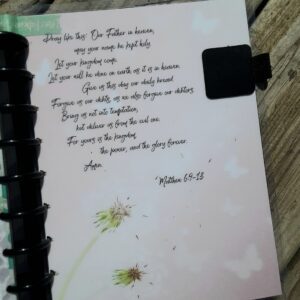 Pray like this: Our Father in heaven,
may your name be kept holy.
Let your kingdom come.
Let your will be done on earth as it is in heaven.
Give us this day our daily bread.
Forgive us our debts, as we also forgive our debtors.
Bring us not into temptation,
but deliver us from the evil one.
For yours is the kingdom,
the power, and the glory forever.
Amen.
Matthew 6:9-13